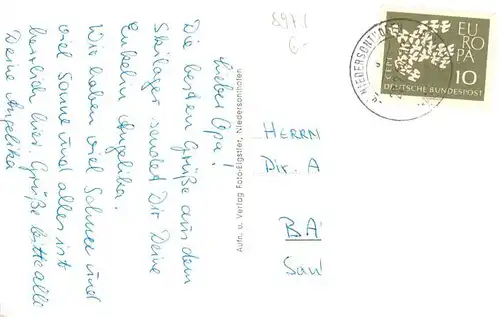 Lieber Opa!
Die besten Grüße aus dem
Skilager sendet Dir Deine
Enkelin Angelika.
Wir haben viel Schnee und
viel Sonne und alles ist
herrlich hier. Grüße bitte alle
Deine Angelika
Aufn. u. Verlag Foto-Eigstler, Niedersonthofen
8971
6-
NIEDERSONTHO
EUROPA
CEPT
10
DEUTSCHE BUNDESPOST
HERRN
Dir. A
BA
San